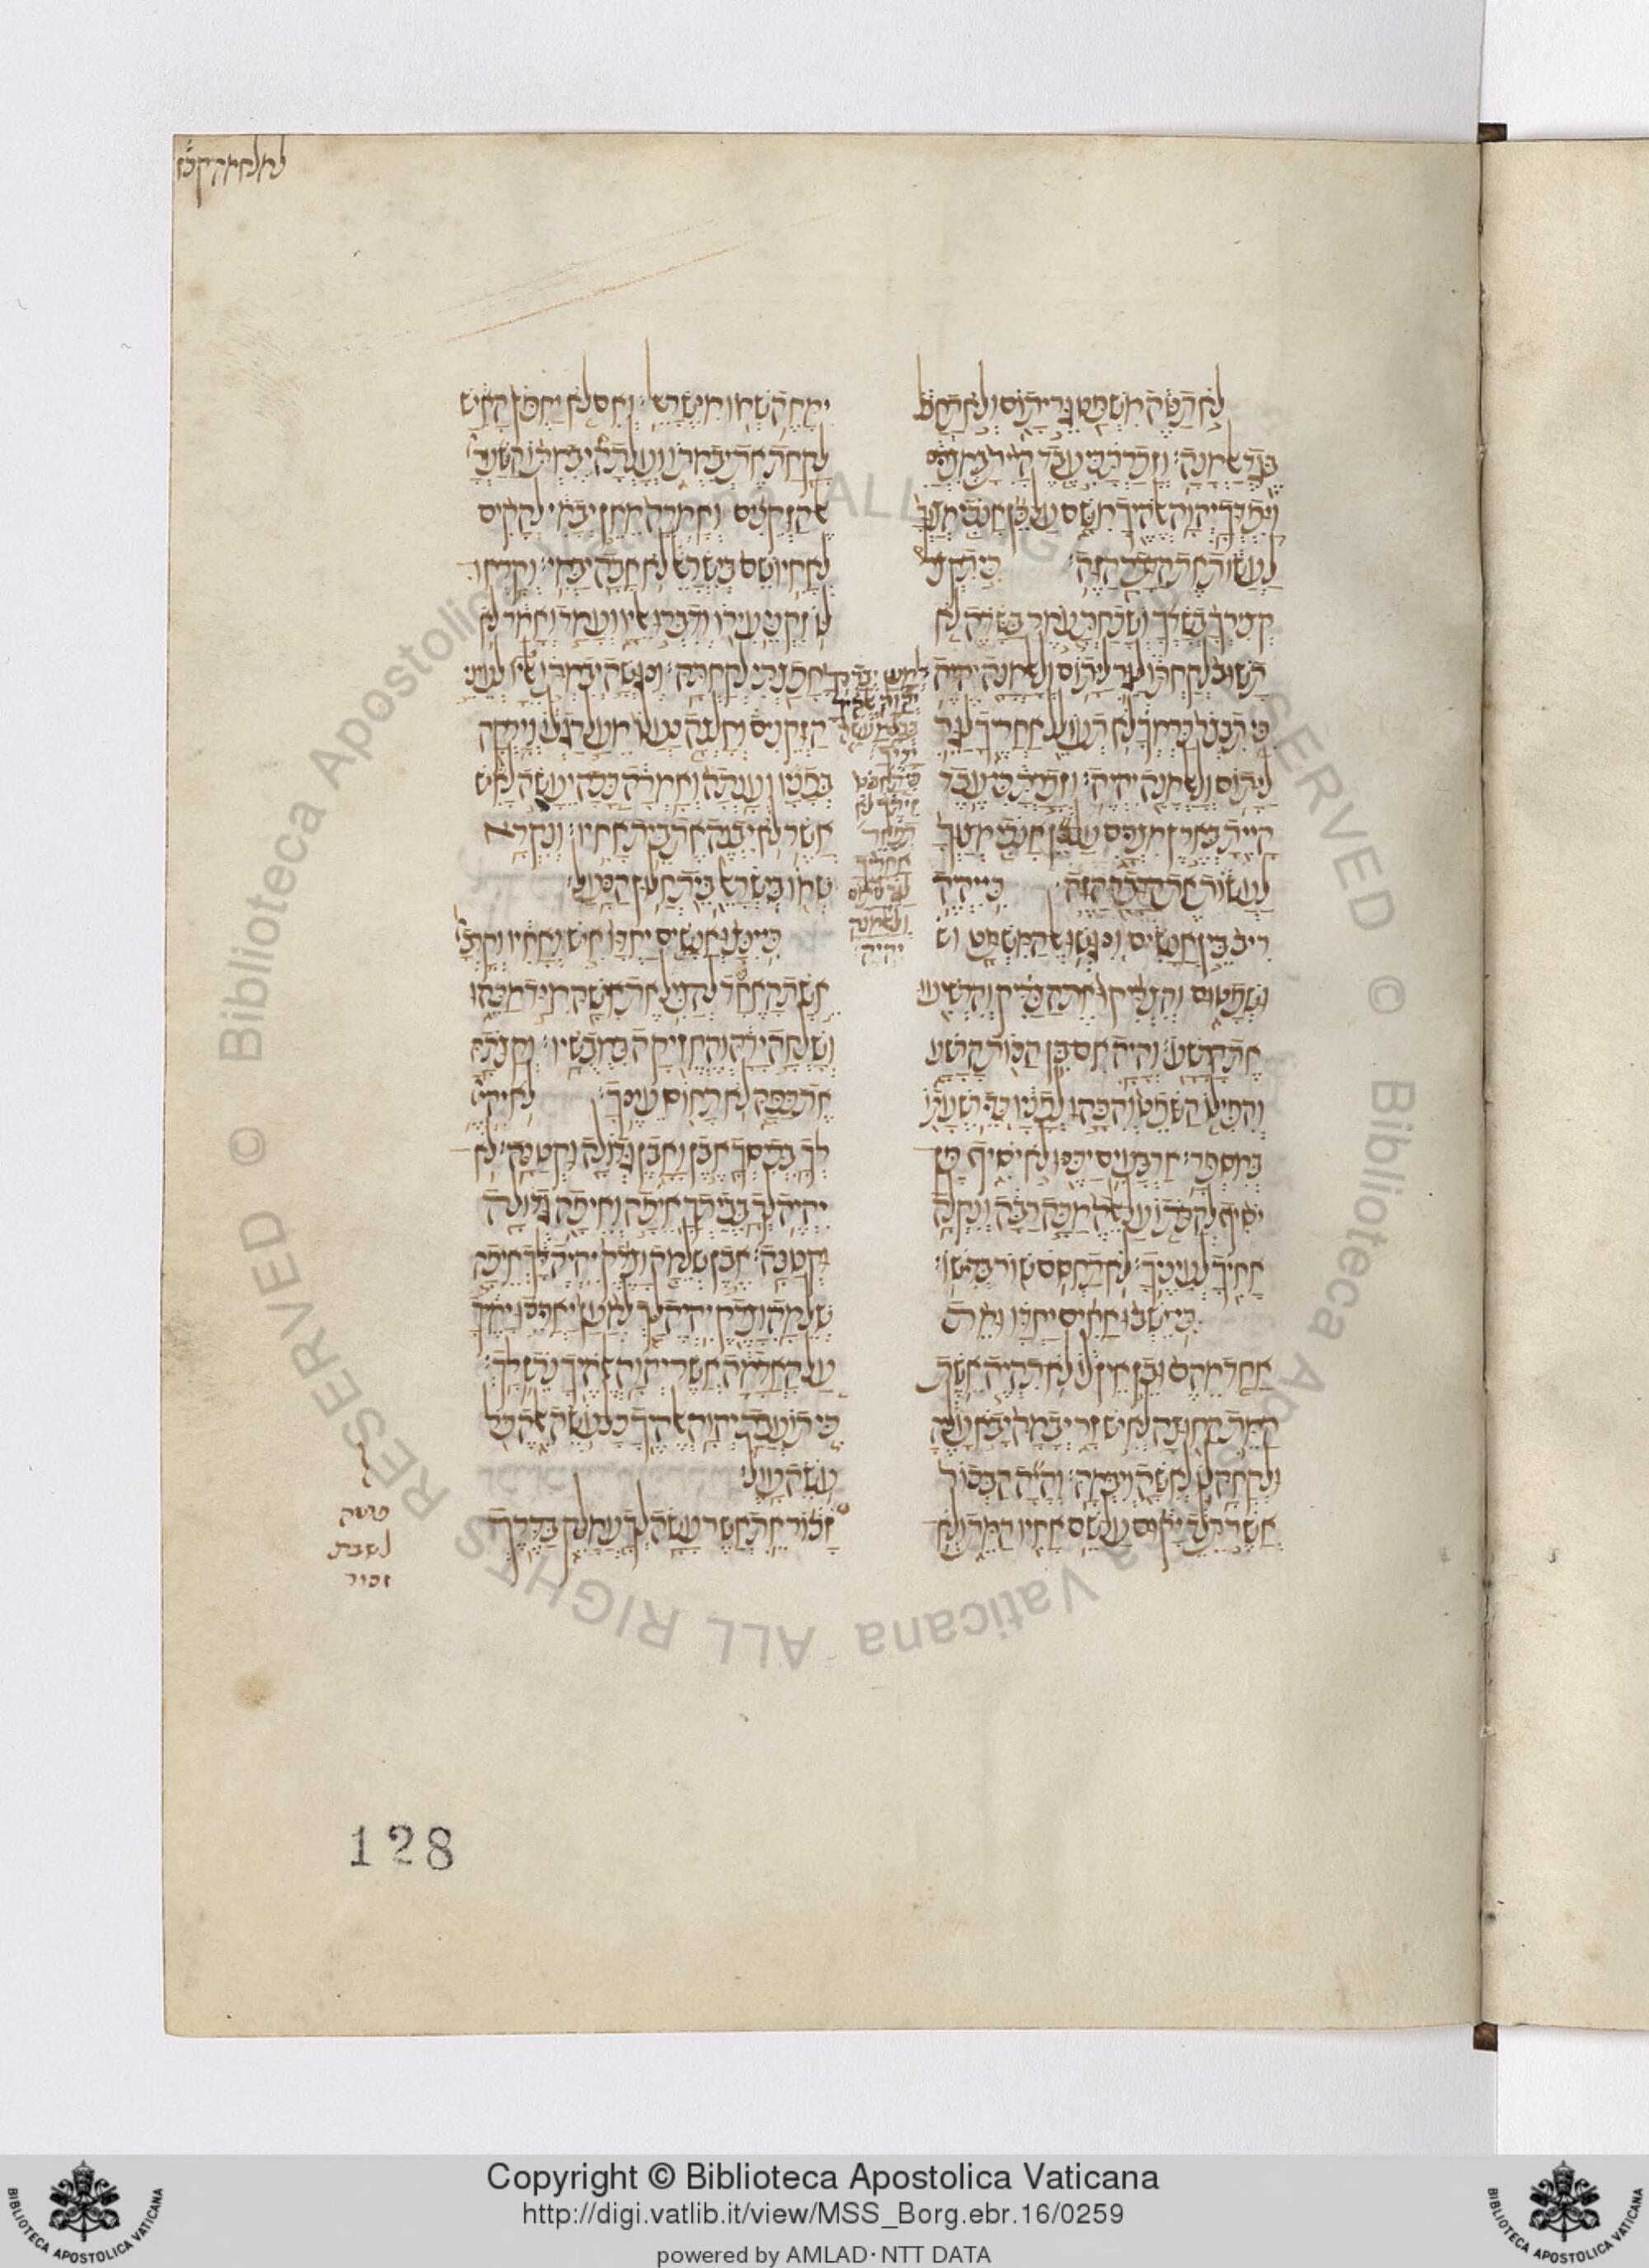 לא תטה משפט גר יתום ולא תחבל
בגד אלמנה: וזכרת כי עבד היית במצרים
ויפדך יהוה אלהיך משם על כן אנכי מצוך
לעשות את הדבר הזה: כי תקצר
קצירך בשדך ושכחת עמר בשדה לא
תשוב לקחתו לגר ליתום ולאלמנה יהיה
כי תבצר כרמך לא תעולל אחריך לגר
ליתום ולאלמנה יהיה: וזכרת כי עבד
היית בארץ מצרים על כן אנכי מצוך
לעשות את הדבר הזה: כי יהיה
ריב בין אנשים ונגשו אל המשפט וש
ושפטום והצדיקו את הצדיק והרשיעו
את הרשע: והיה אם בן הכות הרשע
והפילו השפט והכהו לפניו כדי רשעתו
במספר: ארבעים יכנו לא יסיף פן
יסיף להכתו על אלה מכה רבה ונקלה
אחיך לעיניך: לא תחסם שור בדישו:
כי ישבו אחים יחדו ומת
אחד מהם ובן אין לו לא תהיה אשת
המת החוצה לאיש זר יבמה יבא עליה
ולקחה לו לאשה ויבמה: והיה הבכור
אשר תלד יקום על שם אחיו המת ולא
למען יברכך
יהוה אלהיך
בכל מעשה
ידיך
כי תחבט
זיתך לא
תפאר
אחריך
לגר ליתום
ולאלמנה
יהיה
ימחה שמו מישראל: ואם לא יחפץ האיש
לקחת את יבמתו ועלתה יבמתו השער
אל הזקנים ואמרה מאן יבמי להקים
לאחיו שם בישראל לא אבה יבמי: וקראו
לו זקני עירו ודברו אליו ועמד ואמר לא
חפצתי לקחתה: ונגשה יבמתו אליו לעיני
הזקנים וחלצה נעלו מעל רגלו וירקה
בפניו וענתה ואמרה ככה יעשה לאיש
אשר לא יבנה את בית אחיו: ונקרא
שמו בישראל בית חלוץ הנעל:
כי ינצו אנשים יחדו איש ואחיו וקרב
אשת האחד להציל את אישה מיד מכהו
ושלחה ידה והחזיקה במבשיו: וקצתה
את כפה לא תחוס עינך: לא יהיה
לך בכיסך אבן ואבן גדולה וקטנה: לא
יהיה לך בביתך איפה ואיפה גדולה
וקטנה: אבן שלמה וצדק יהיה לך איפה
שלמה וצדק יהיה לך למען יאריכו ימיך
על האדמה אשר יהוה אלהיך נתן לך:
כי תועבת יהוה אלהיך כל עשה אלה כל
עשה עול:
זכור את אשר עשה לך עמלק בדרך
פרשה
לשבת
זכור
128
Copyright © Biblioteca Apostolica Vaticana
http://digi.vatlib.it/view/MSS_Borg.ebr.16/0259
powered by AMLAD·NTT DATA